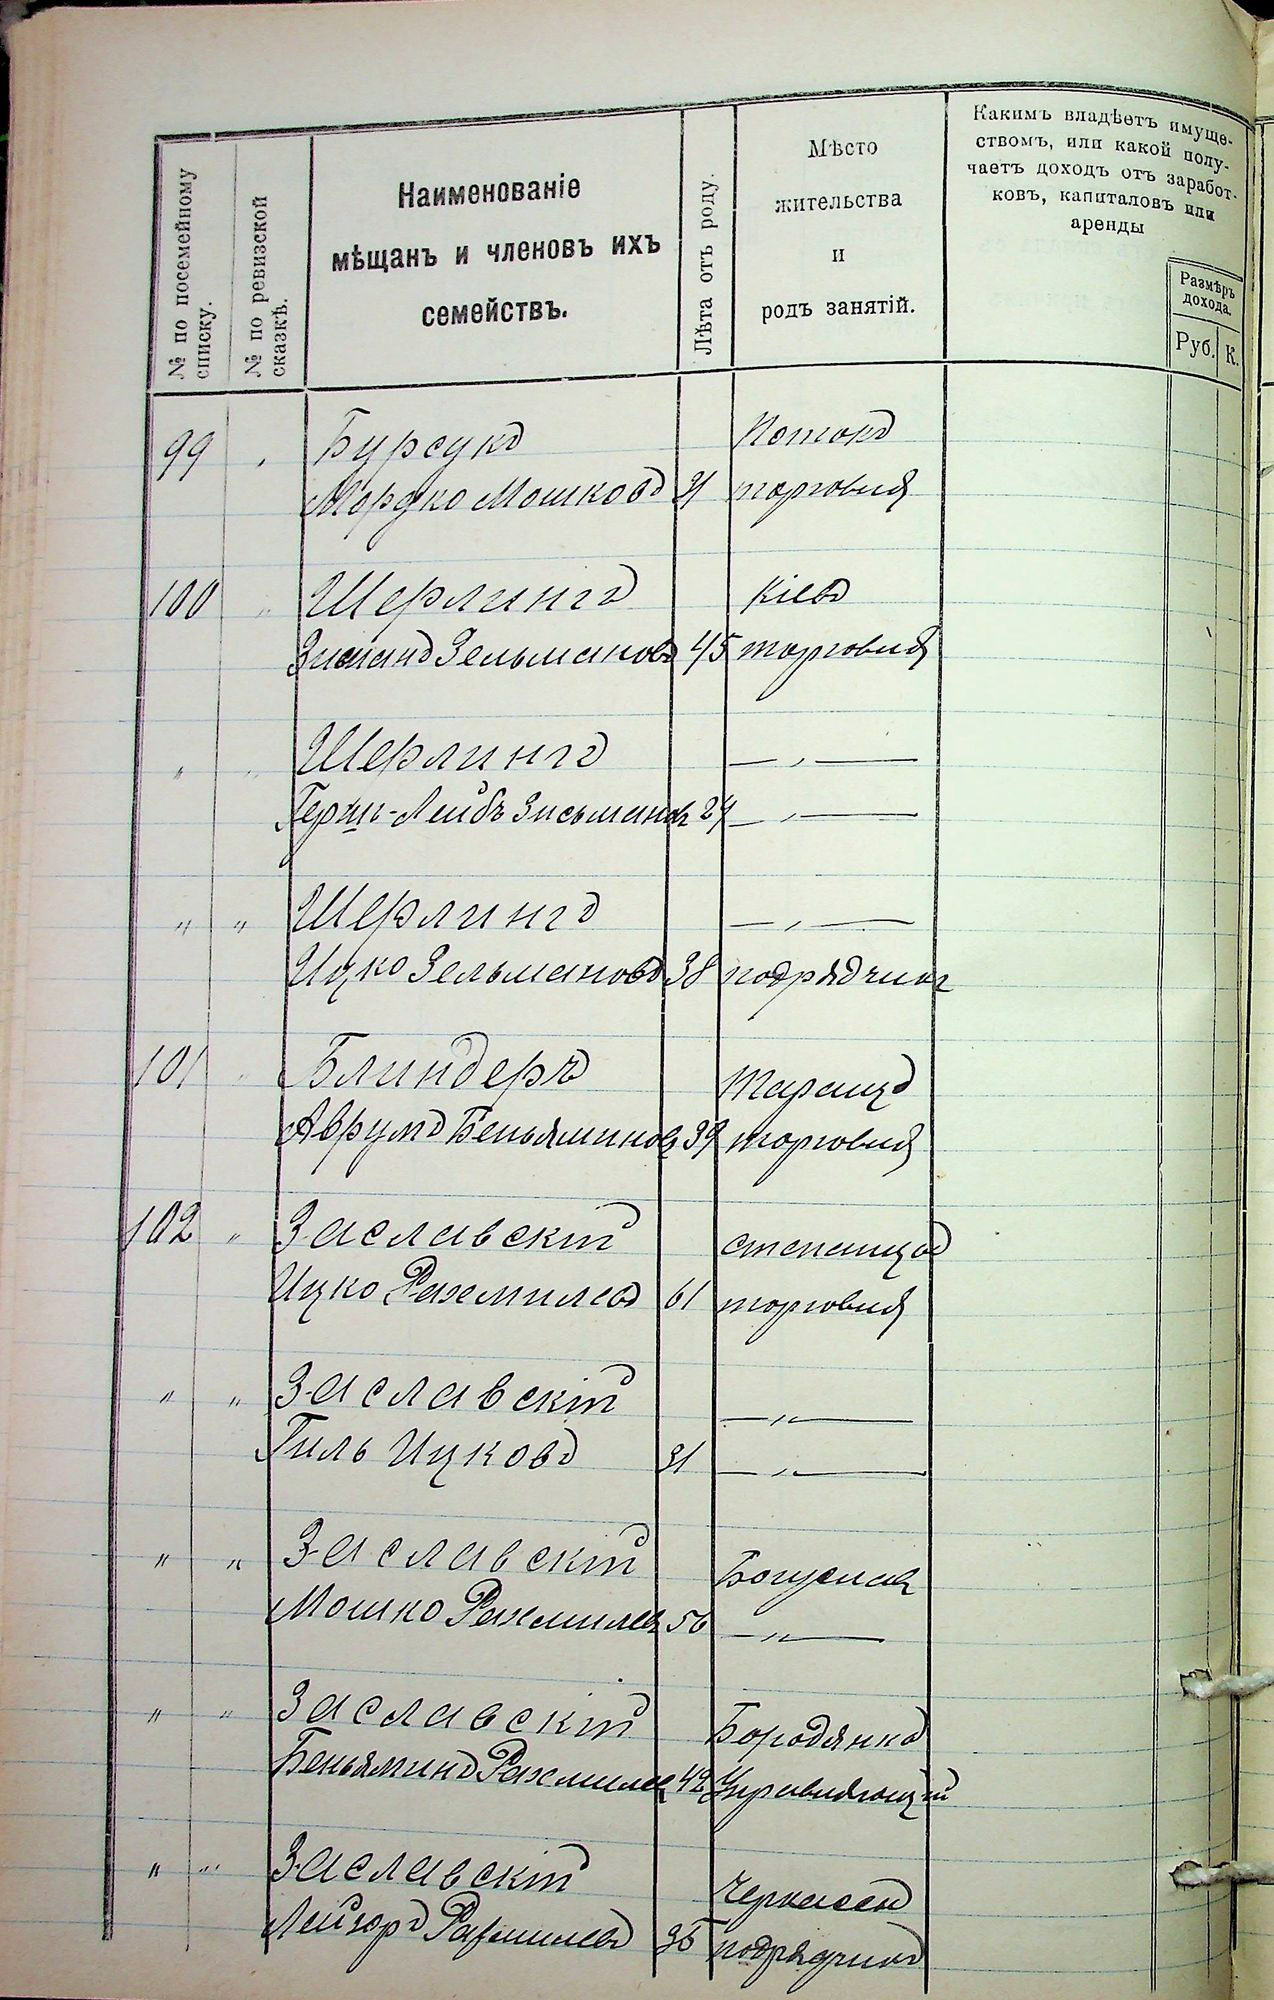 № по посемейному
списку.
№ по ревизской
сказкѣ.
Наименованіе
мѣщанъ и членовъ ихъ
семействъ.
Лѣта отъ роду.
Мѣсто
жительства
и
родъ занятій.
Какимъ владѣетъ имуще-
ствомъ, или какой полу-
чаетъ доходъ отъ заработ-
ковъ, капиталовъ или
аренды
Размѣръ
дохода.
Руб. К.
99 " Бурсукъ Потокъ
Мордко Мошковъ 31 торговля
100 " Шерлингъ Кіевъ
Зисманъ Зельмановъ 45 торговля
" " Шерлингъ — " —
Герш-Лейбъ Зисьманов 24 — " —
" " Шерлингъ — " —
Ицко Зельмановъ 38 подрядчик
101 " Блиндеръ Таращ
Аврумъ Беньяминов 39 торговля
102 " Заславскій Степанцы
Ицко Рахмилевъ 61 торговля
" " Заславскій — " —
Гиль Ицковъ 31 — " —
" " Заславскій Богуслав
Мошко Рахмилев 56 — " —
" " Заславскій Бородянка
Беньяминъ Рахмилев 42 Управляющій
" " Заславскій Черкассы
Лейзоръ Рахмилевъ 35 подрядчикъ